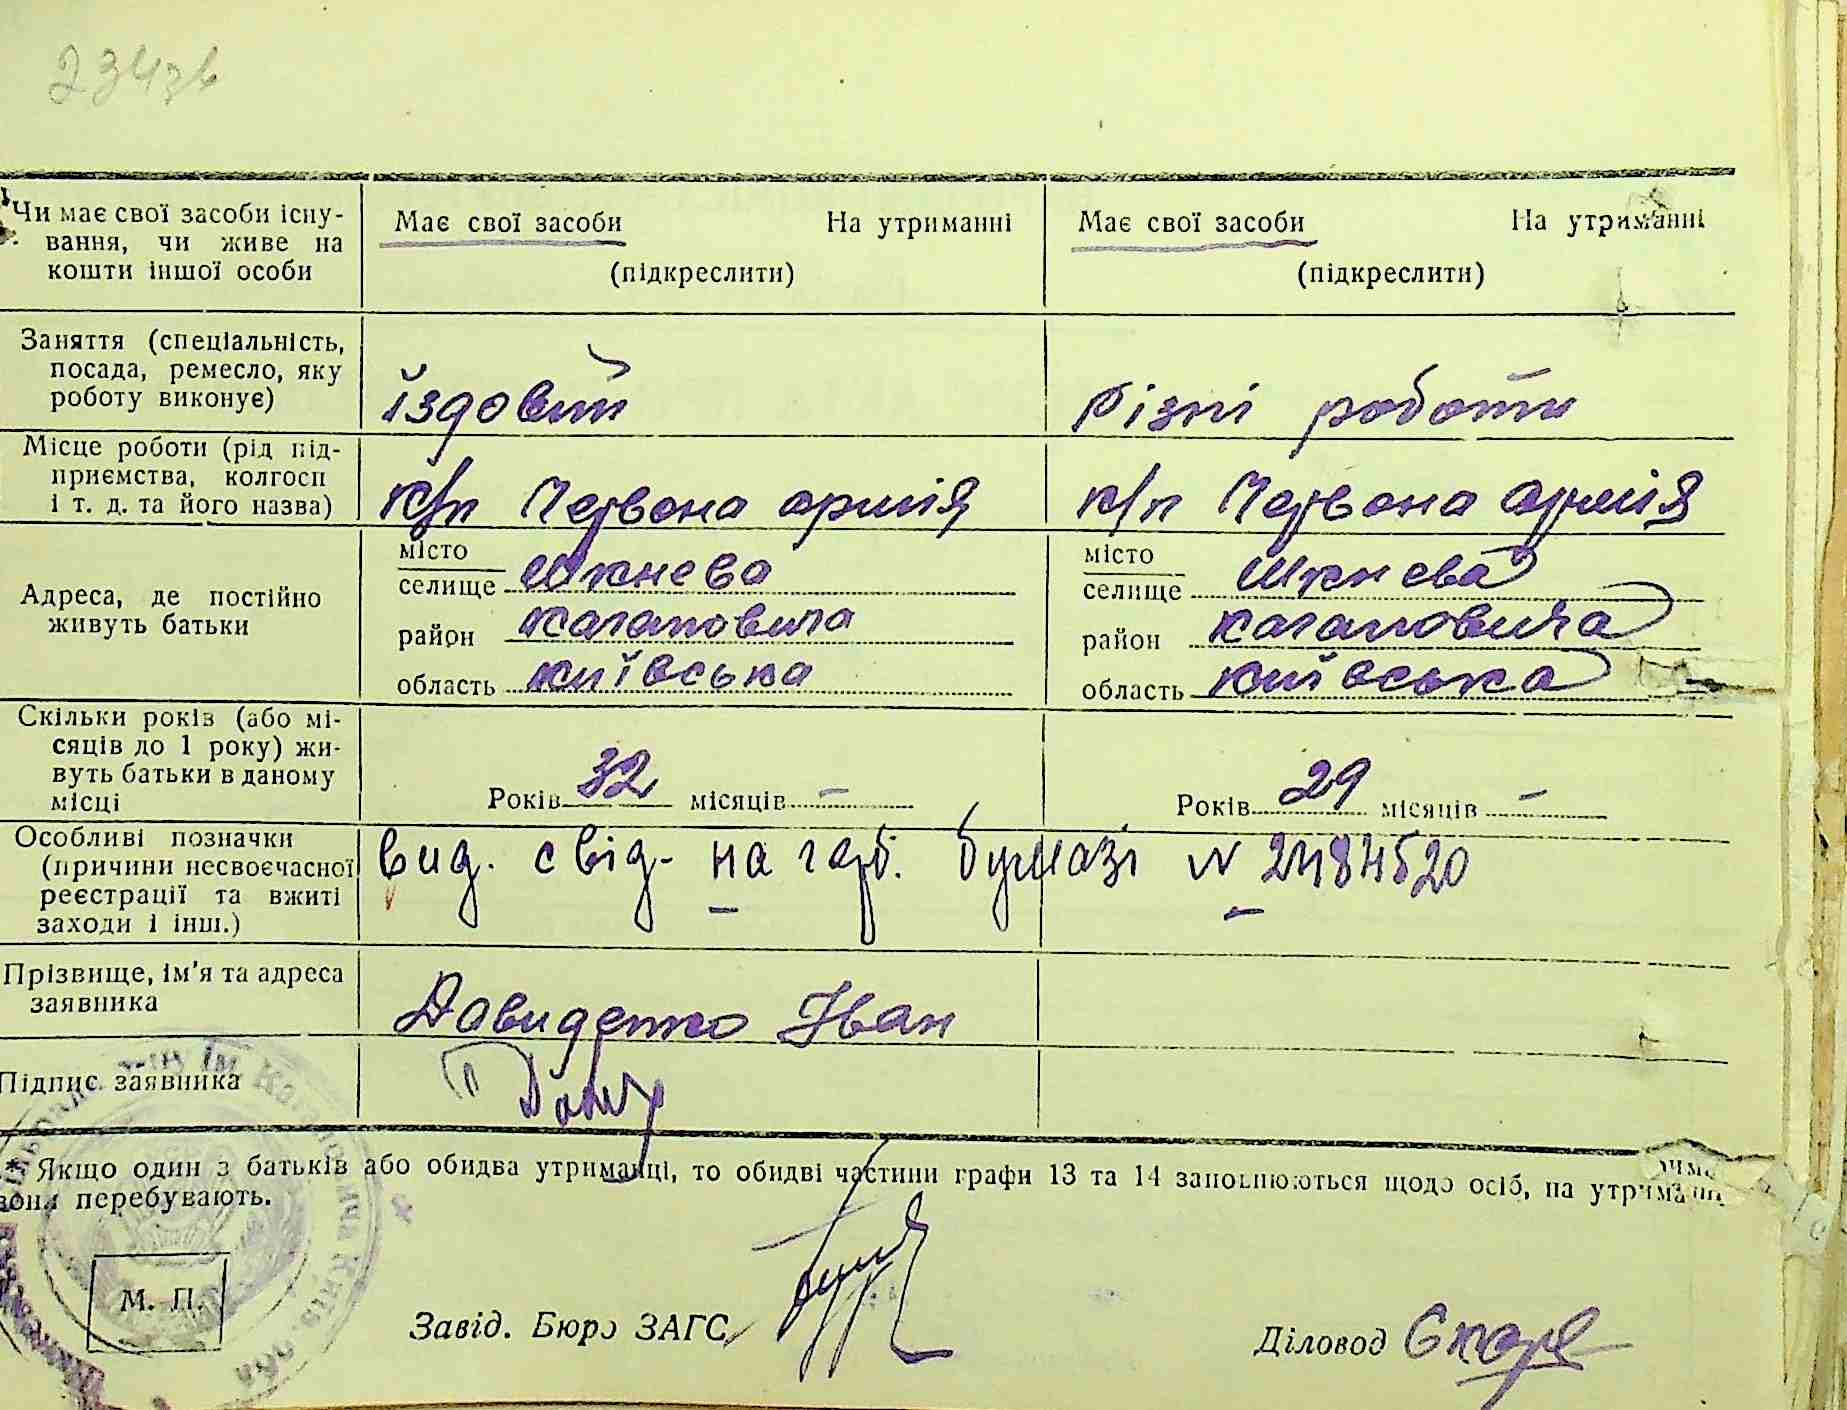 234зв
Чи має свої засоби існу-
вання, чи живе на
кошти іншої особи
Має свої засоби На утриманні
(підкреслити)
Має свої засоби На утриманні
(підкреслити)
Заняття (спеціальність,
посада, ремесло, яку
роботу виконує)
їздовий
різні роботи
Місце роботи (рід під-
приємства, колгосп
і т. д. та його назва)
к/п Червона армія
к/п Червона армія
Адреса, де постійно
живуть батьки
місто
селище Шкнева
район Кагановича
область Київська
місто
селище Шкнева
район Кагановича
область Київська
Скільки років (або мі-
сяців до 1 року) жи-
вуть батьки в даному
місці
Років 32 місяців –
Років 29 місяців –
Особливі позначки
(причини несвоєчасної
реєстрації та вжиті
заходи і інш.)
вид. свід. на герб. бумазі N 2484520
Прізвище, ім'я та адреса
заявника
Давиденко Іван
Підпис заявника
* Якщо один з батьків або обидва утриманці, то обидві частини графи 13 та 14 заповнюються щодо осіб, на утриманні
вони перебувають.
М. П.
Завід. Бюро ЗАГС
Діловод